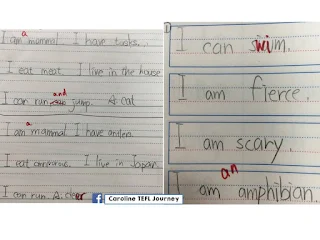 a
I am mammal I have tusks...
I eat meat. I live in the house
and
I can run jump. A cat
a
I am mammal I have antlers.
I eat I live in Japan.
I can run A deer
I can swim.
I am fierce.
I am scary.
an
I am amphibian.
Caroline TEFL Journey